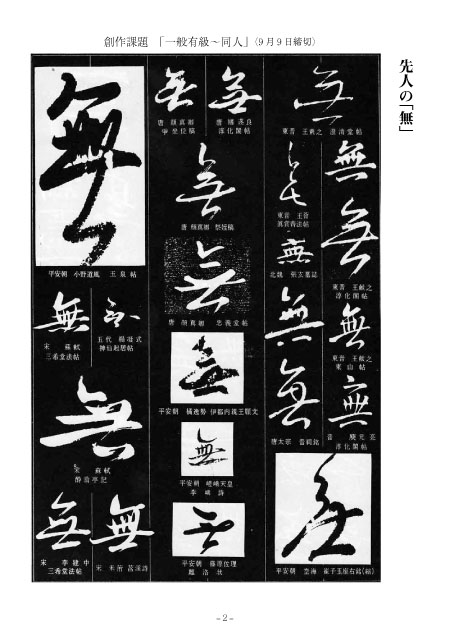 創作課題 「一般有級～同人」(9月9日締切)
先人の「無」
東晋 王羲之 澄清堂帖
無
東晋 王献之
淳化閣帖
無
東晋 王献之
東山帖
無
淳化閣帖
無
平安朝 空海 崔子玉座右銘(稿)
無
東晋 王薈
無
北魏 張玄墓誌
無
無
唐太宗 晋祠銘
無
唐 褚遂良
淳化閣帖
無
唐 顔真卿
争坐位稿
無
唐 顔真卿 祭姪稿
無
唐 顔真卿 忠義堂帖
無
平安朝 橘逸勢 伊都内親王願文
無
平安朝 嵯峨天皇
李嶠詩
無
平安朝 藤原佐理
離洛状
無
平安朝 小野道風 玉泉帖
無
五代 楊凝式
神仙起居帖
無
宋 蘇軾
三希堂法帖
無
宋 蘇軾
酔翁亭記
無
宋 米芾 苕溪詩
無
宋 李建中
三希堂法帖
無
- 2 -